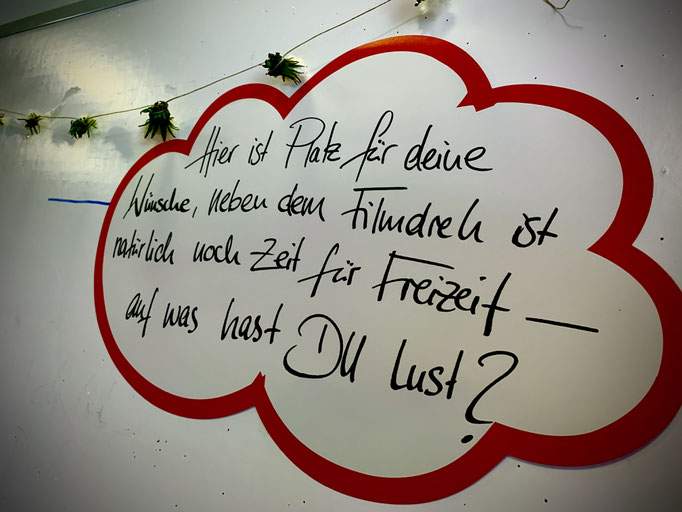 Hier ist Platz für deine
Wünsche, neben dem Filmdreh ist
natürlich noch Zeit für Freizeit –
auf was hast DU Lust?